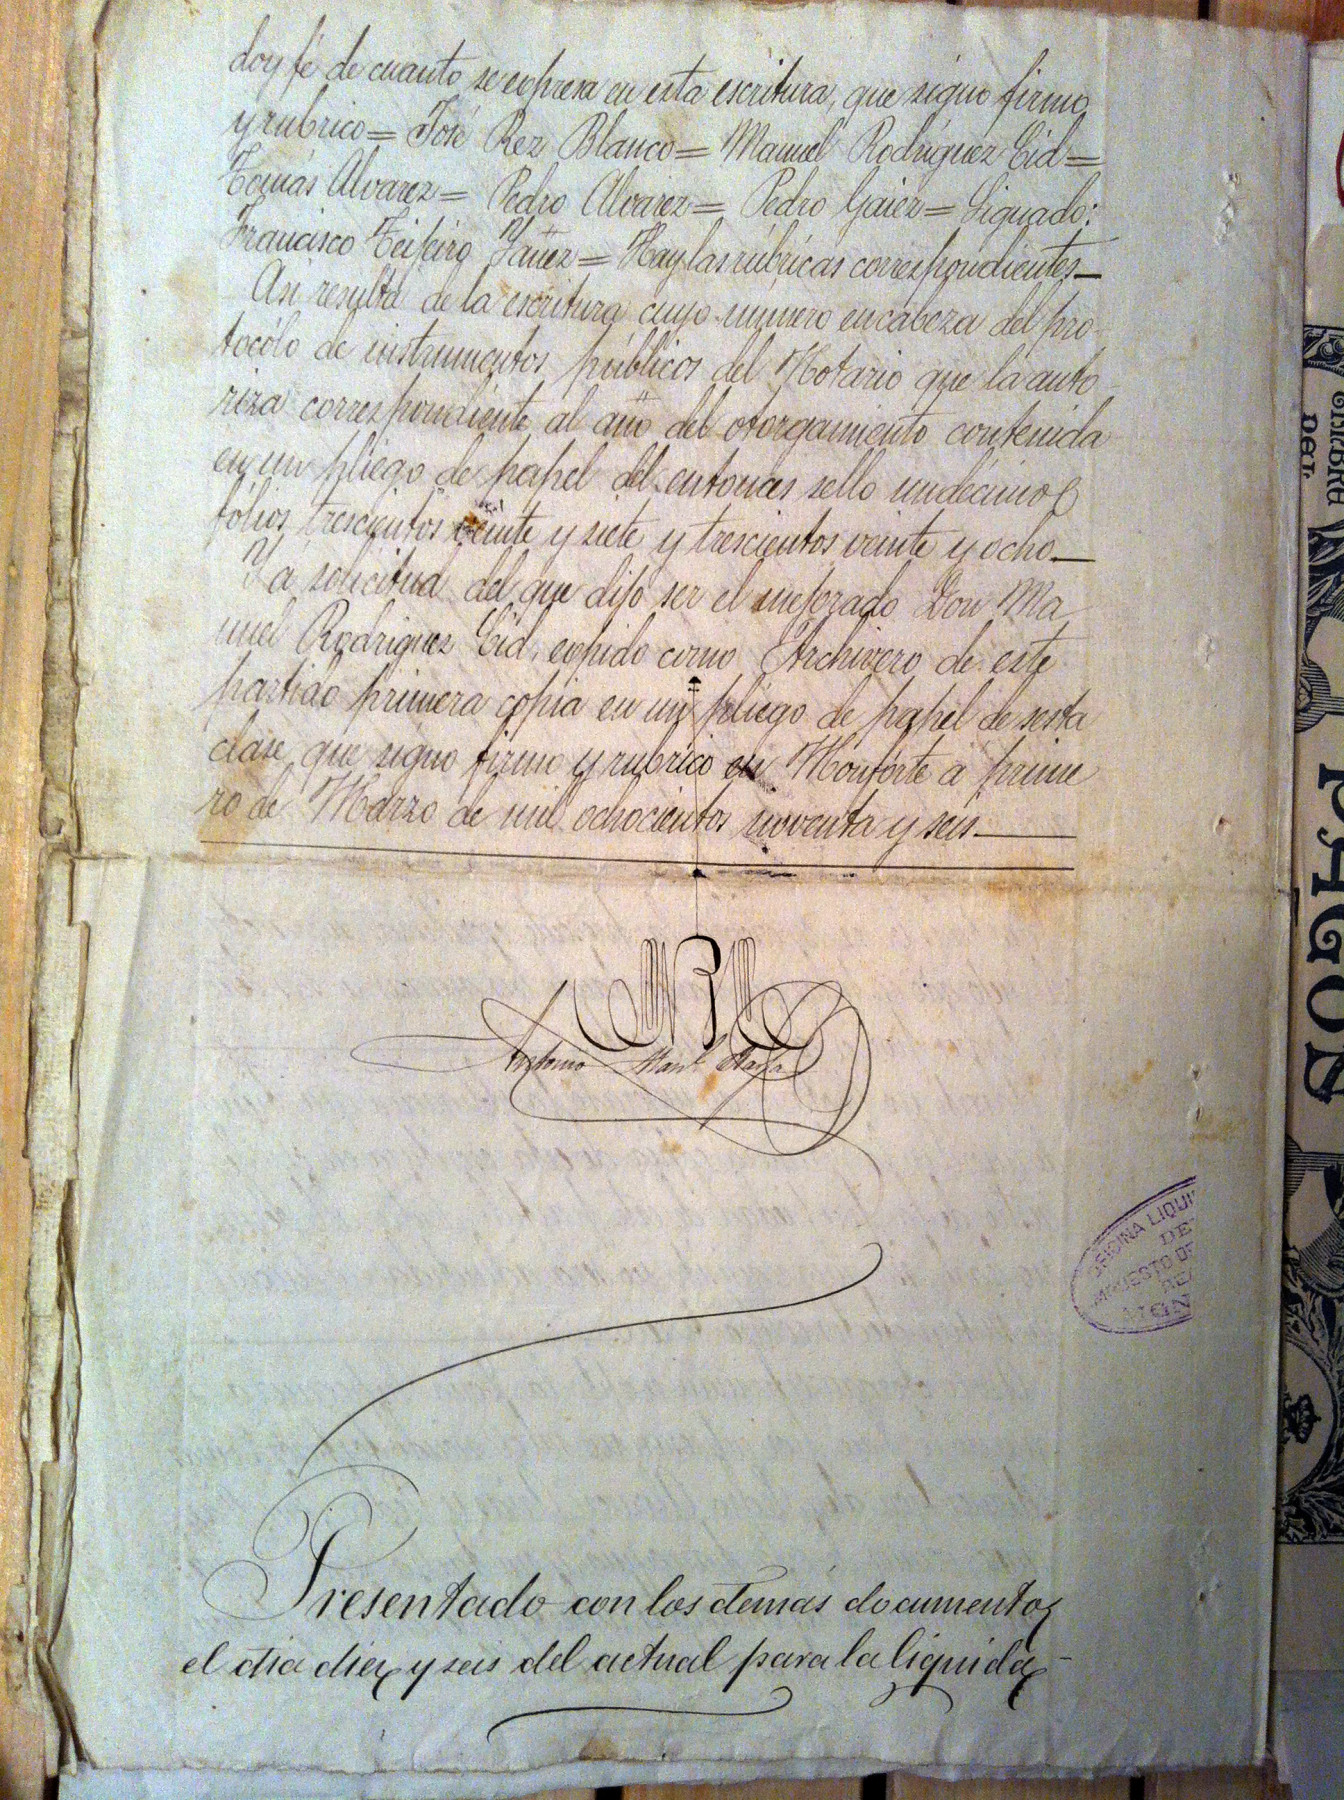 doy fé de cuanto se expresa en esta escritura, que signo firmo
y rubrico= José Rez Blanco= Manuel Rodriguez Cid=
Tomás Alvarez= Pedro Alvarez= Pedro Gaiez= Signado:
Francisco Teijeiro Yañez= Hay las rúbricas correspondientes—
Asi resulta de la escritura cuyo número encabeza del pro-
tocólo de instrumentos públicos del Notario que la auto-
riza correspondiente al año del otorgamiento contenida
en un pliego de papel del entonces sello undécimo
fólios trescientos veinte y siete y trescientos veinte y ocho.—
Y á solicitud del que dijo ser el mejorado Don Ma
nuel Rodriguez Cid, expido como Archivero de este
partido primera copia en un pliego de papel de sesta
clase que signo firmo y rubrico en Monforte á prime
ro de Marzo de mil ochocientos noventa y seis.—
Antonio Manl
Presentado con los demás documentos
el dia diez y seis del actual para la liquida-
OFICINA LIQUI
DE
IMPUESTO DE
PAGOS